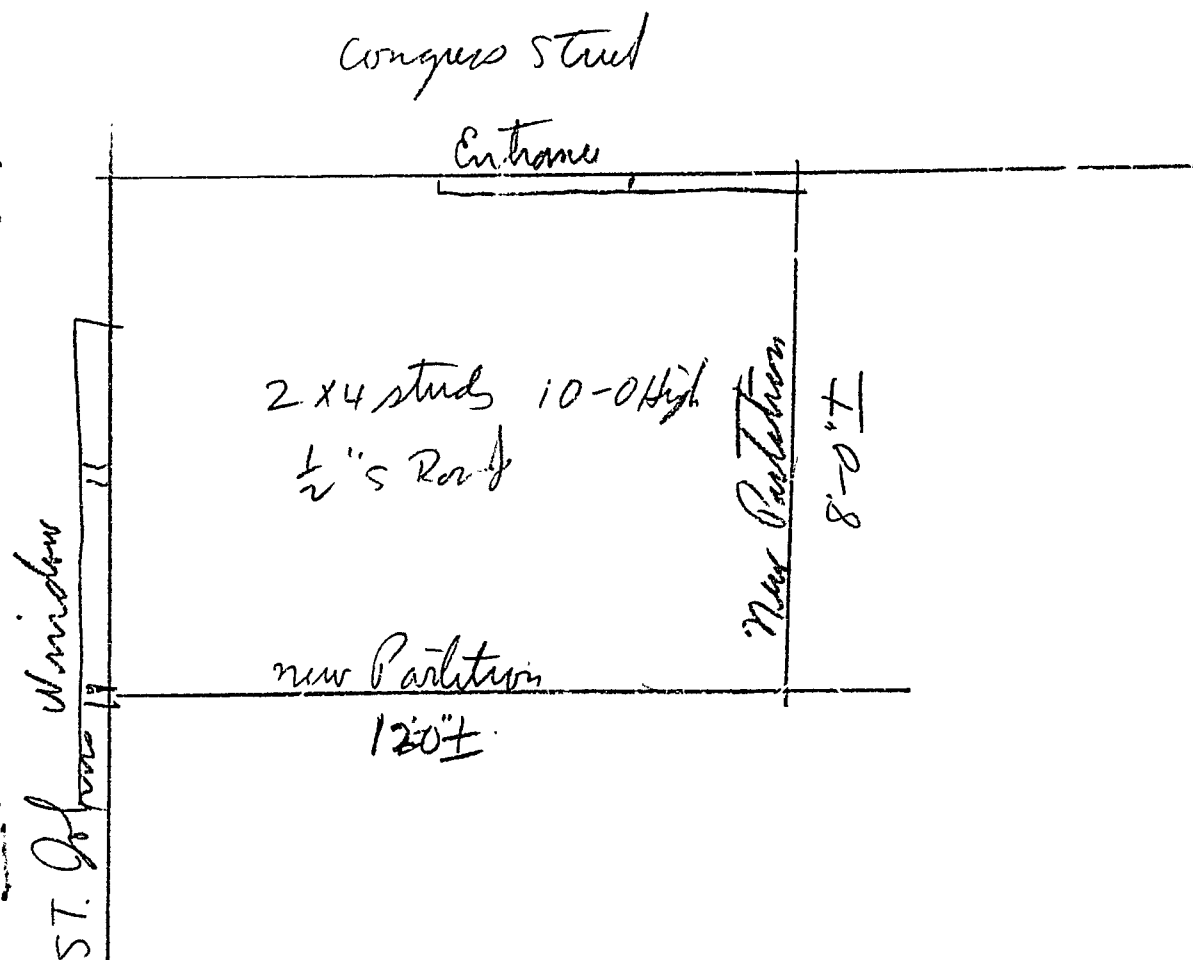 Congress Street
Entrance
2 x 4 studs 10-0 High
1/2" s Rock
New Partition
8'-0" ±
new Partition
12'0" ±
Window
ST. Johns